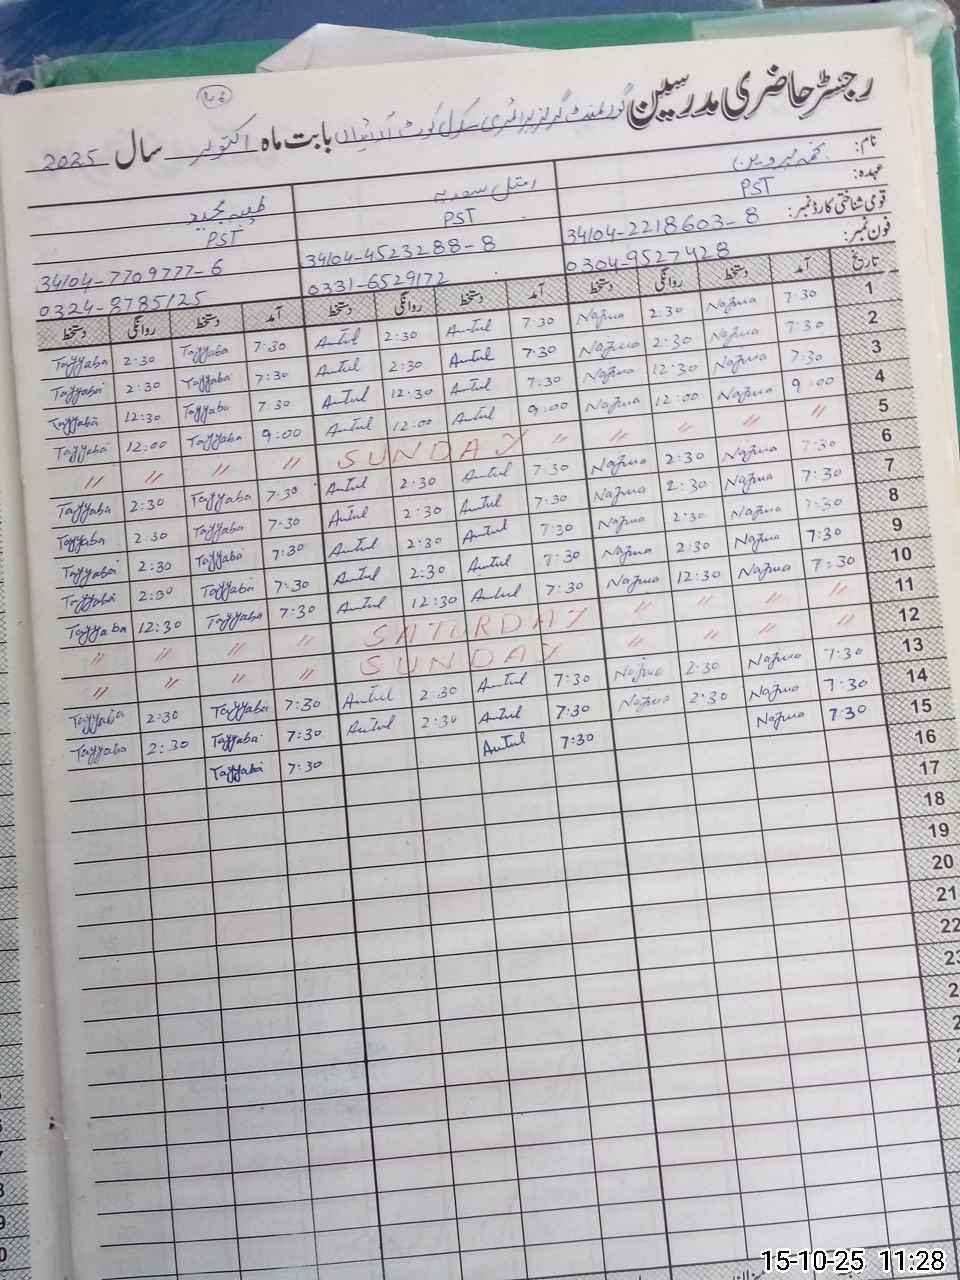 رجسٹر حاضری مدرسین گورنمنٹ گرلز پرائمری سکول کوٹ بابت ماہ اکتوبر سال 2025
نام: نجمہ پروین امتل طیبہ مجید
عہدہ: PST PST PST
قومی شناختی کارڈ نمبر: 34104-2218603-8 34104-4523288-8 34104-7709777-6
فون نمبر: 0304-9527428 0331-6529172 0324-8785125
تاریخ آمد دستخط روانگی دستخط آمد دستخط روانگی دستخط آمد دستخط روانگی دستخط
1 7:30 Najma 2:30 Najma 7:30 Amtul 2:30 Amtul 7:30 Tayyaba 2:30 Tayyaba
2 7:30 Najma 2:30 Najma 7:30 Amtul 2:30 Amtul 7:30 Tayyaba 2:30 Tayyaba
3 7:30 Najma 12:30 Najma 7:30 Amtul 12:30 Amtul 7:30 Tayyaba 12:30 Tayyaba
4 9:00 Najma 12:00 Najma 9:00 Amtul 12:00 Amtul 9:00 Tayyaba 12:00 Tayyaba
5 // // // // // SUNDAY // // // //
6 7:30 Najma 2:30 Najma 7:30 Amtul 2:30 Amtul 7:30 Tayyaba 2:30 Tayyaba
7 7:30 Najma 2:30 Najma 7:30 Amtul 2:30 Amtul 7:30 Tayyaba 2:30 Tayyaba
8 7:30 Najma 2:30 Najma 7:30 Amtul 2:30 Amtul 7:30 Tayyaba 2:30 Tayyaba
9 7:30 Najma 2:30 Najma 7:30 Amtul 2:30 Amtul 7:30 Tayyaba 2:30 Tayyaba
10 7:30 Najma 12:30 Najma 7:30 Amtul 12:30 Amtul 7:30 Tayyaba 12:30 Tayyaba
11 // // // // SATURDAY // // // //
12 // // // // SUNDAY // // // //
13 7:30 Najma 2:30 Najma 7:30 Amtul 2:30 Amtul 7:30 Tayyaba 2:30 Tayyaba
14 7:30 Najma 2:30 Najma 7:30 Amtul 2:30 Amtul 7:30 Tayyaba 2:30 Tayyaba
15 7:30 Najma 7:30 Amtul 7:30 Tayyaba
16
17
18
19
20
21
22
23
15-10-25 11:28